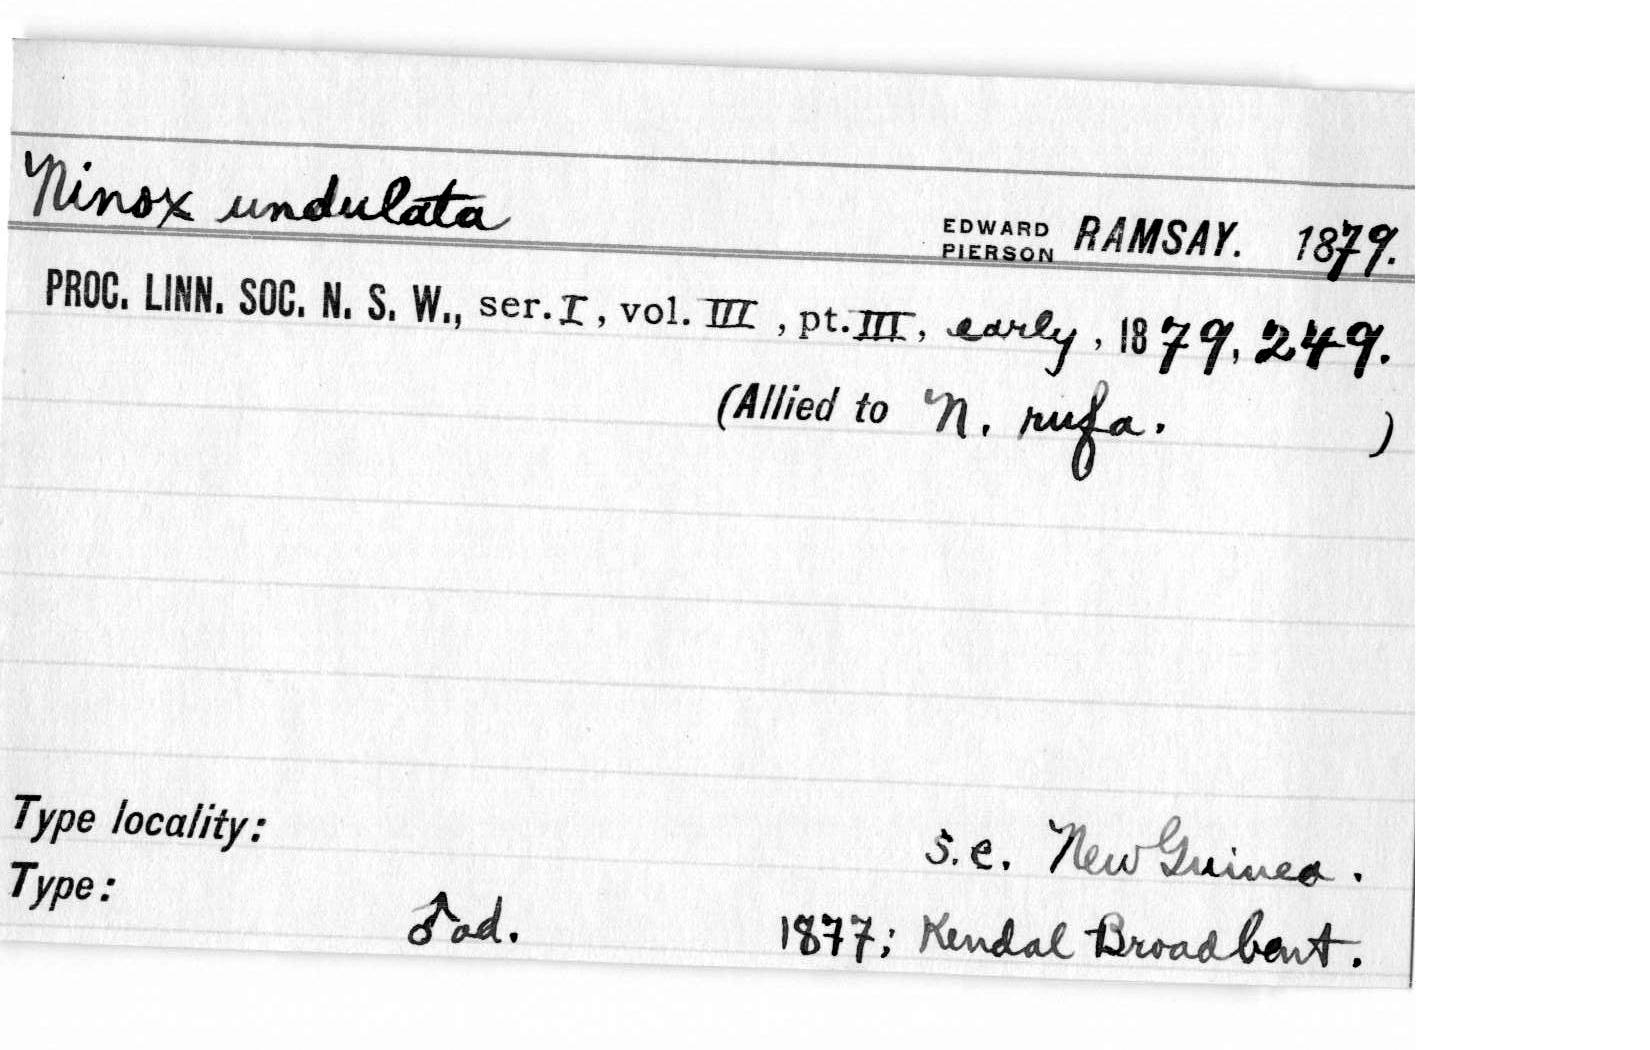 Ninox undulata EDWARD PIERSON RAMSAY. 1879.
PROC. LINN. SOC. N. S. W., ser. I, vol. III, pt. III, early, 1879, 249.
(Allied to N. rufa. )
Type locality: S.e. New Guinea.
Type: ♂ ad. 1877; Kendal Broadbent.